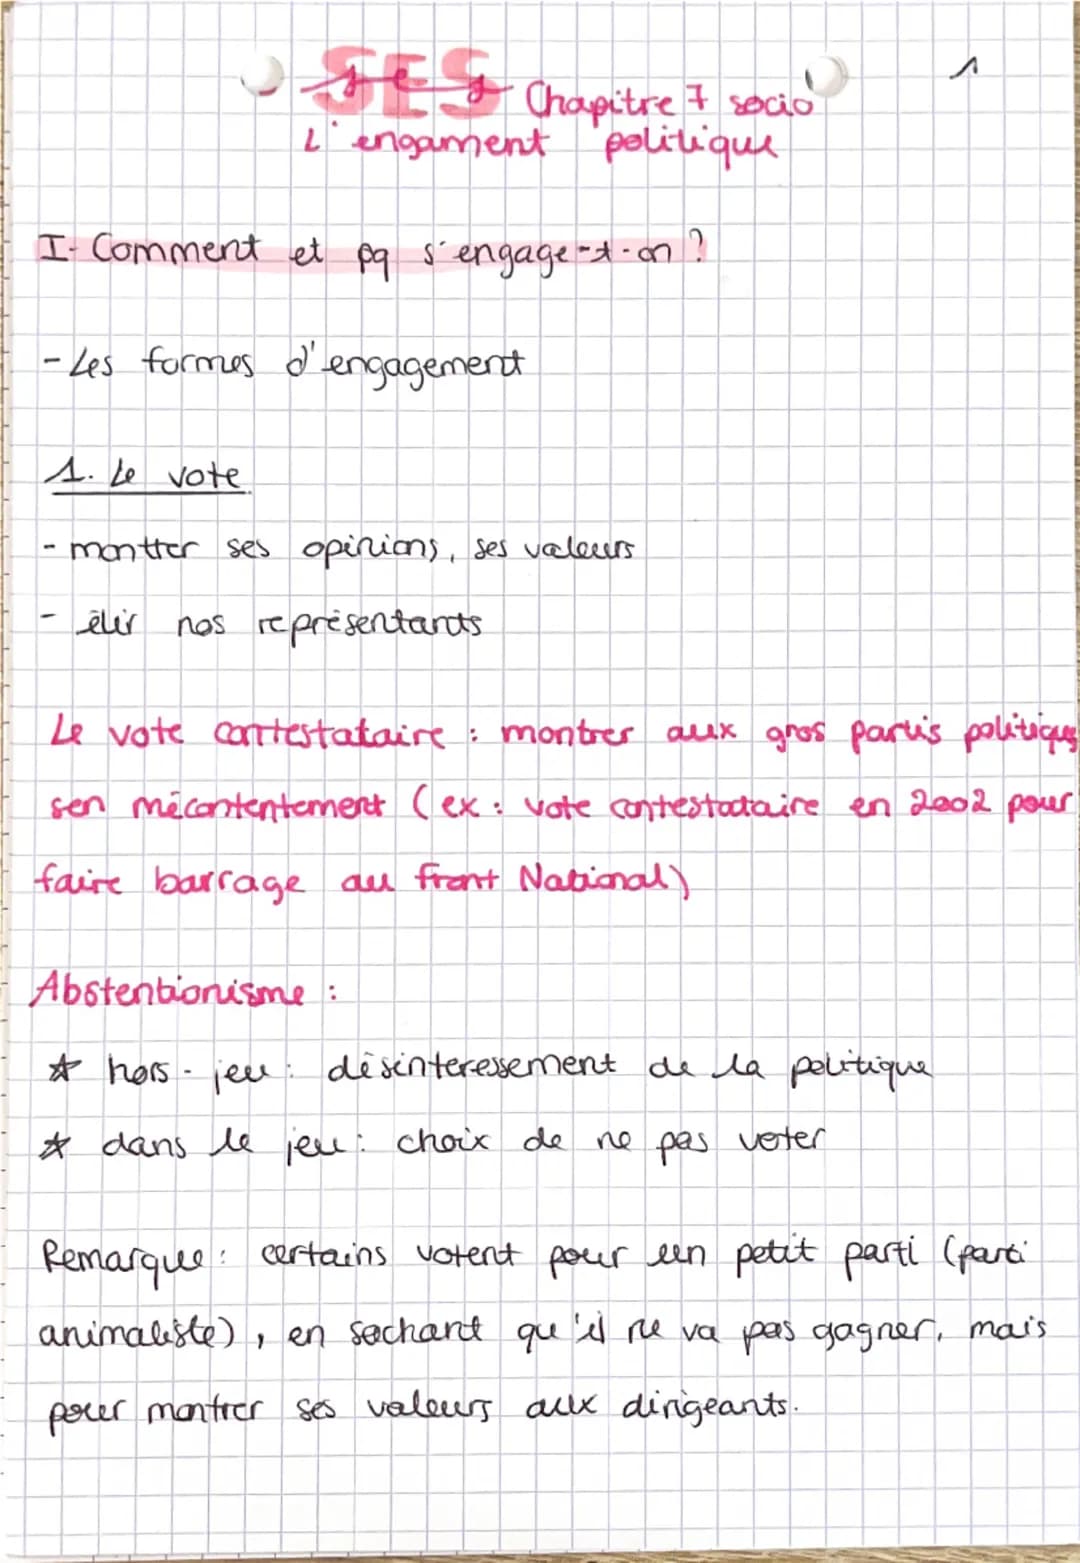 SES Chapitre 7 socio
1
L'engament politique
I- Comment et pq s'engage-t-on ?
- Les formes d'engagement
1. Le vote
- montrer ses opinions, ses valeurs
- élir nos représentants
Le vote contestataire : montrer aux gros partis politiques
son mécontentement (ex : vote contestataire en 2002 pour
faire barrage au Front National)
Abstentionisme :
* hors-jeu : désinteressement de la politique
* dans le jeu : choix de ne pas voter
Remarque : certains votent pour un petit parti (parti
animaliste), en sachant qu'il ne va pas gagner, mais
pour montrer ses valeurs aux dirigeants.